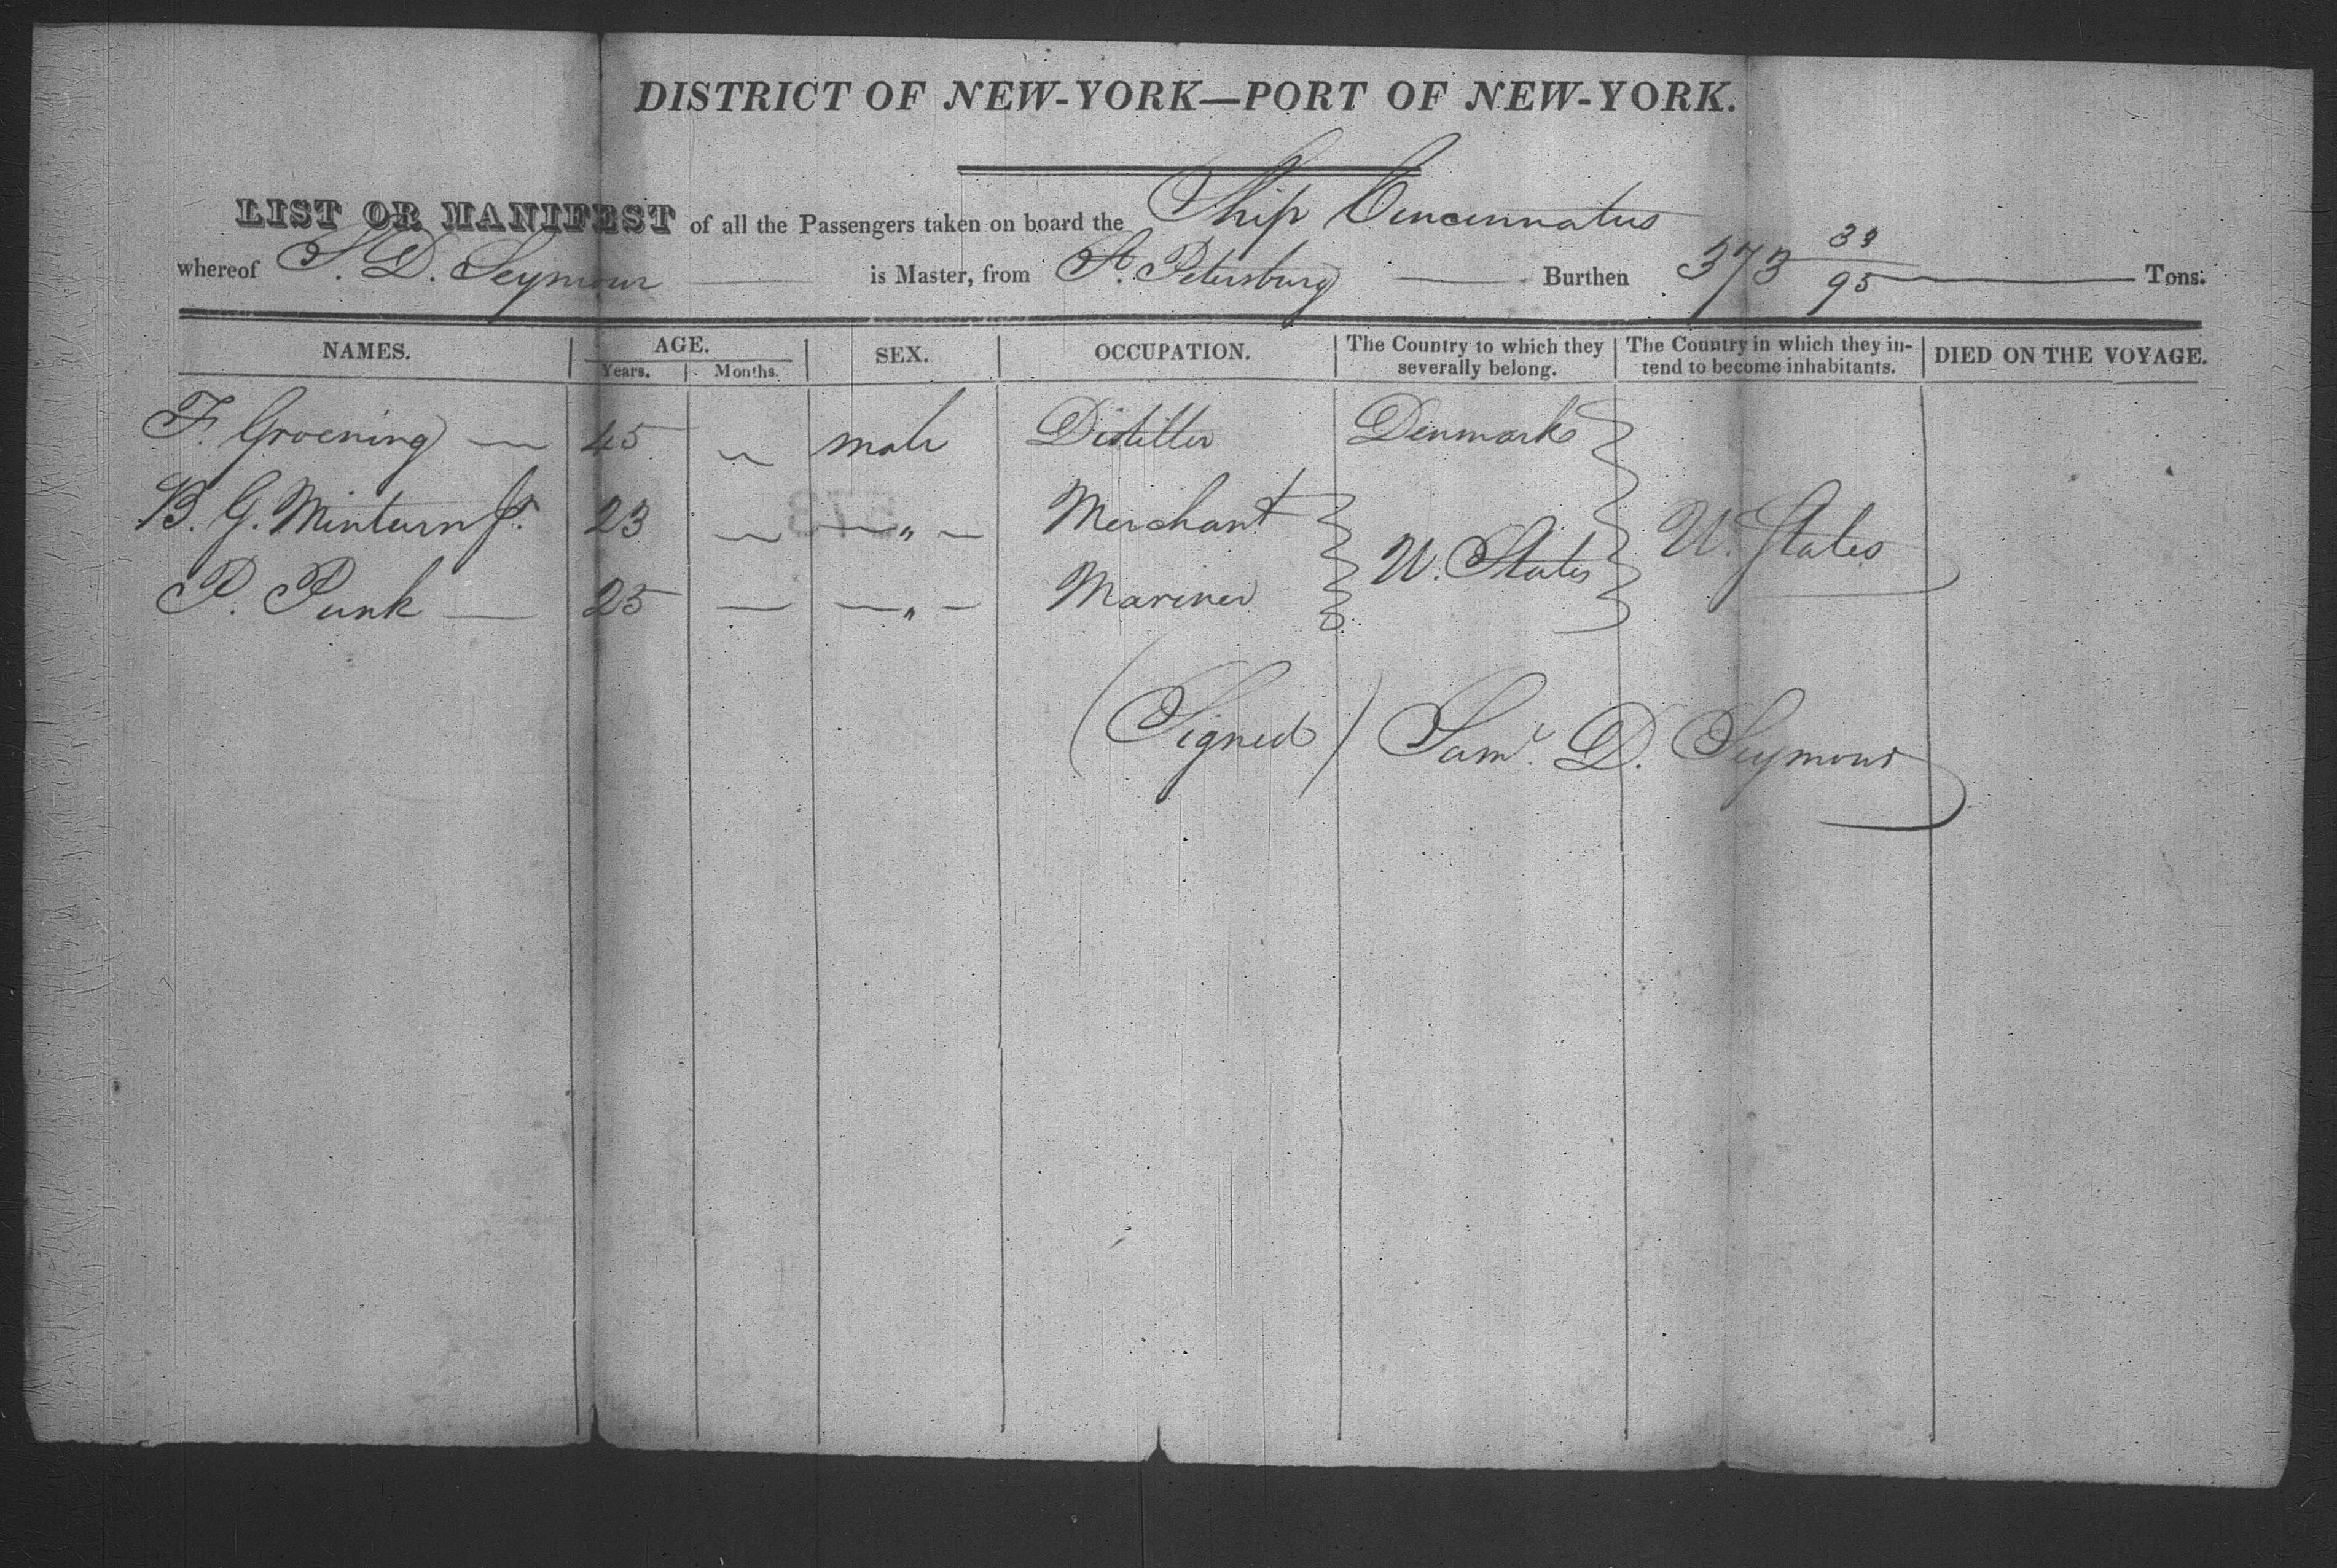 DISTRICT OF NEW-YORK—PORT OF NEW-YORK.
LIST OR MANIFEST of all the Passengers taken on board the Ship Cincinnatus
whereof S. D. Seymour is Master, from St. Petersburg Burthen 373 33/95 Tons.
NAMES. AGE. SEX. OCCUPATION. The Country to which they severally belong. The Country in which they intend to become inhabitants. DIED ON THE VOYAGE.
Years. Months.
F. Groening — 45 " male Distiller Denmark
B. G. Minturn Jr. 23 — — " — Merchant
U. States U. States
P. Punk — 25 — — " — Mariner
(Signed) Saml. D. Seymour